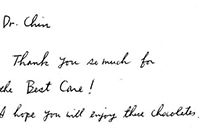 Dr. Chin
Thank you so much for
the Best Care!
I hope you will enjoy these chocolates,